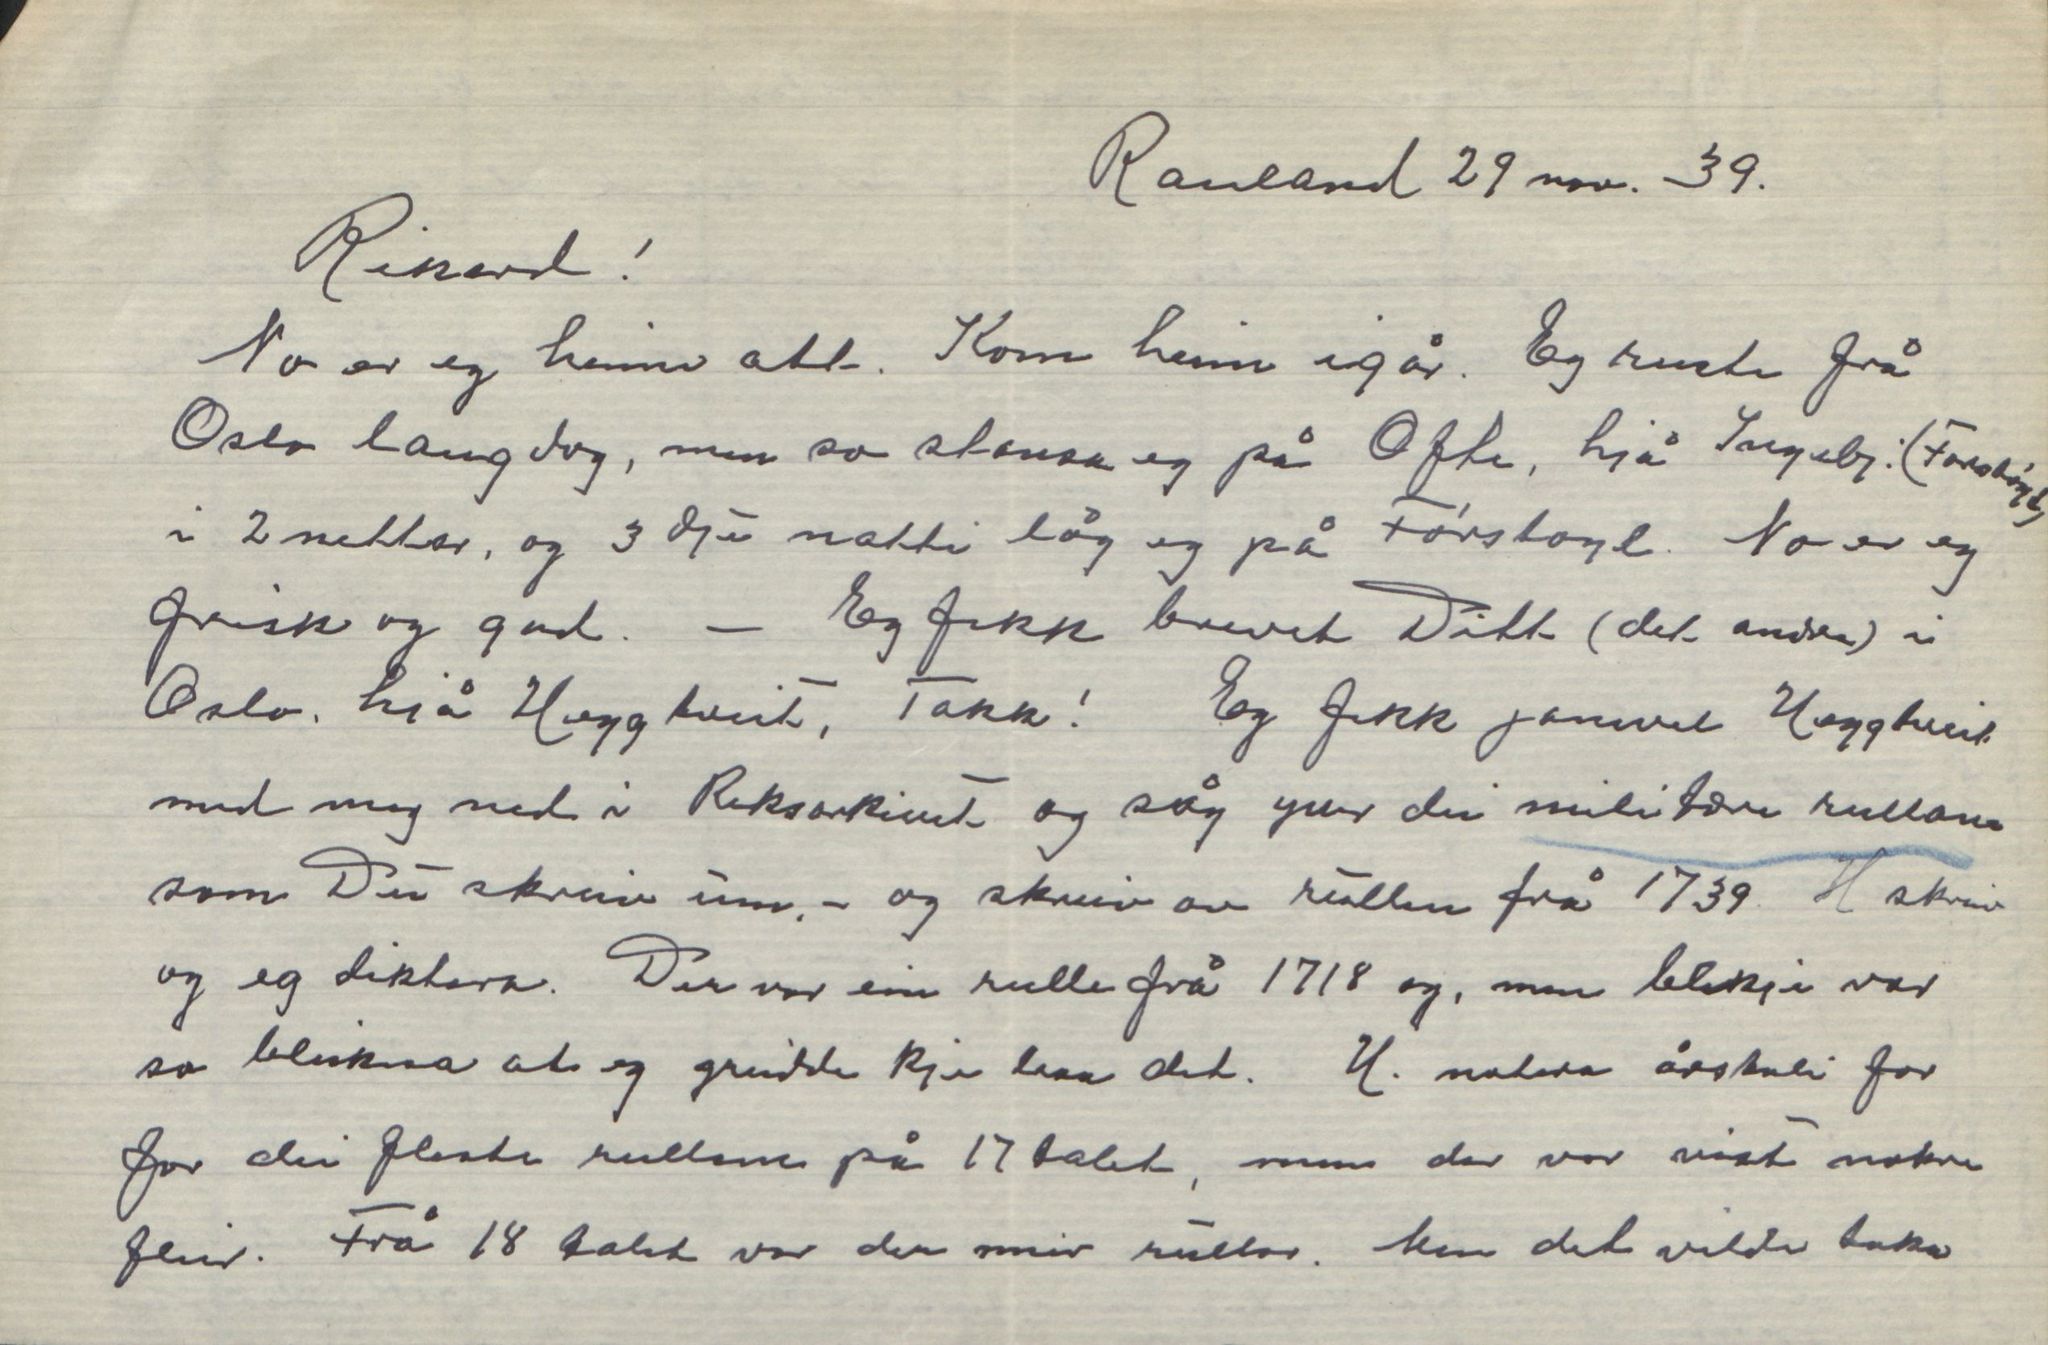 Rauland 29 nov. -39.
Rikard!
No er eg heime att. Kom heim igår. Eg reiste frå
Oslo laugdog, men so stansa eg på Ofte, hjå Ingebj. (Forstøyl)
i 2 netter, og 3 dje natti låg eg på Førstøyl. No er eg
frisk og god. — Eg fekk brevet Ditt (det andre) i
Oslo. hjå Heggtveit, Takk! Eg fekk jamvel Heggtveit
med meg ned i Riksarkivet og såg yver dei militære rullane
som Du skreiv um, - og skreiv av rullen frå 1739. H skreiv
og eg diktera. Der var ein rulle frå 1718 og, men blekje var
so bleikna at eg greidde kje lesa det. H. notera årstali for
for dei fleste rullane på 17 talet, men der var visst nokre
fleir. Frå 18 talet var der meir rullor. Men det vilde taka